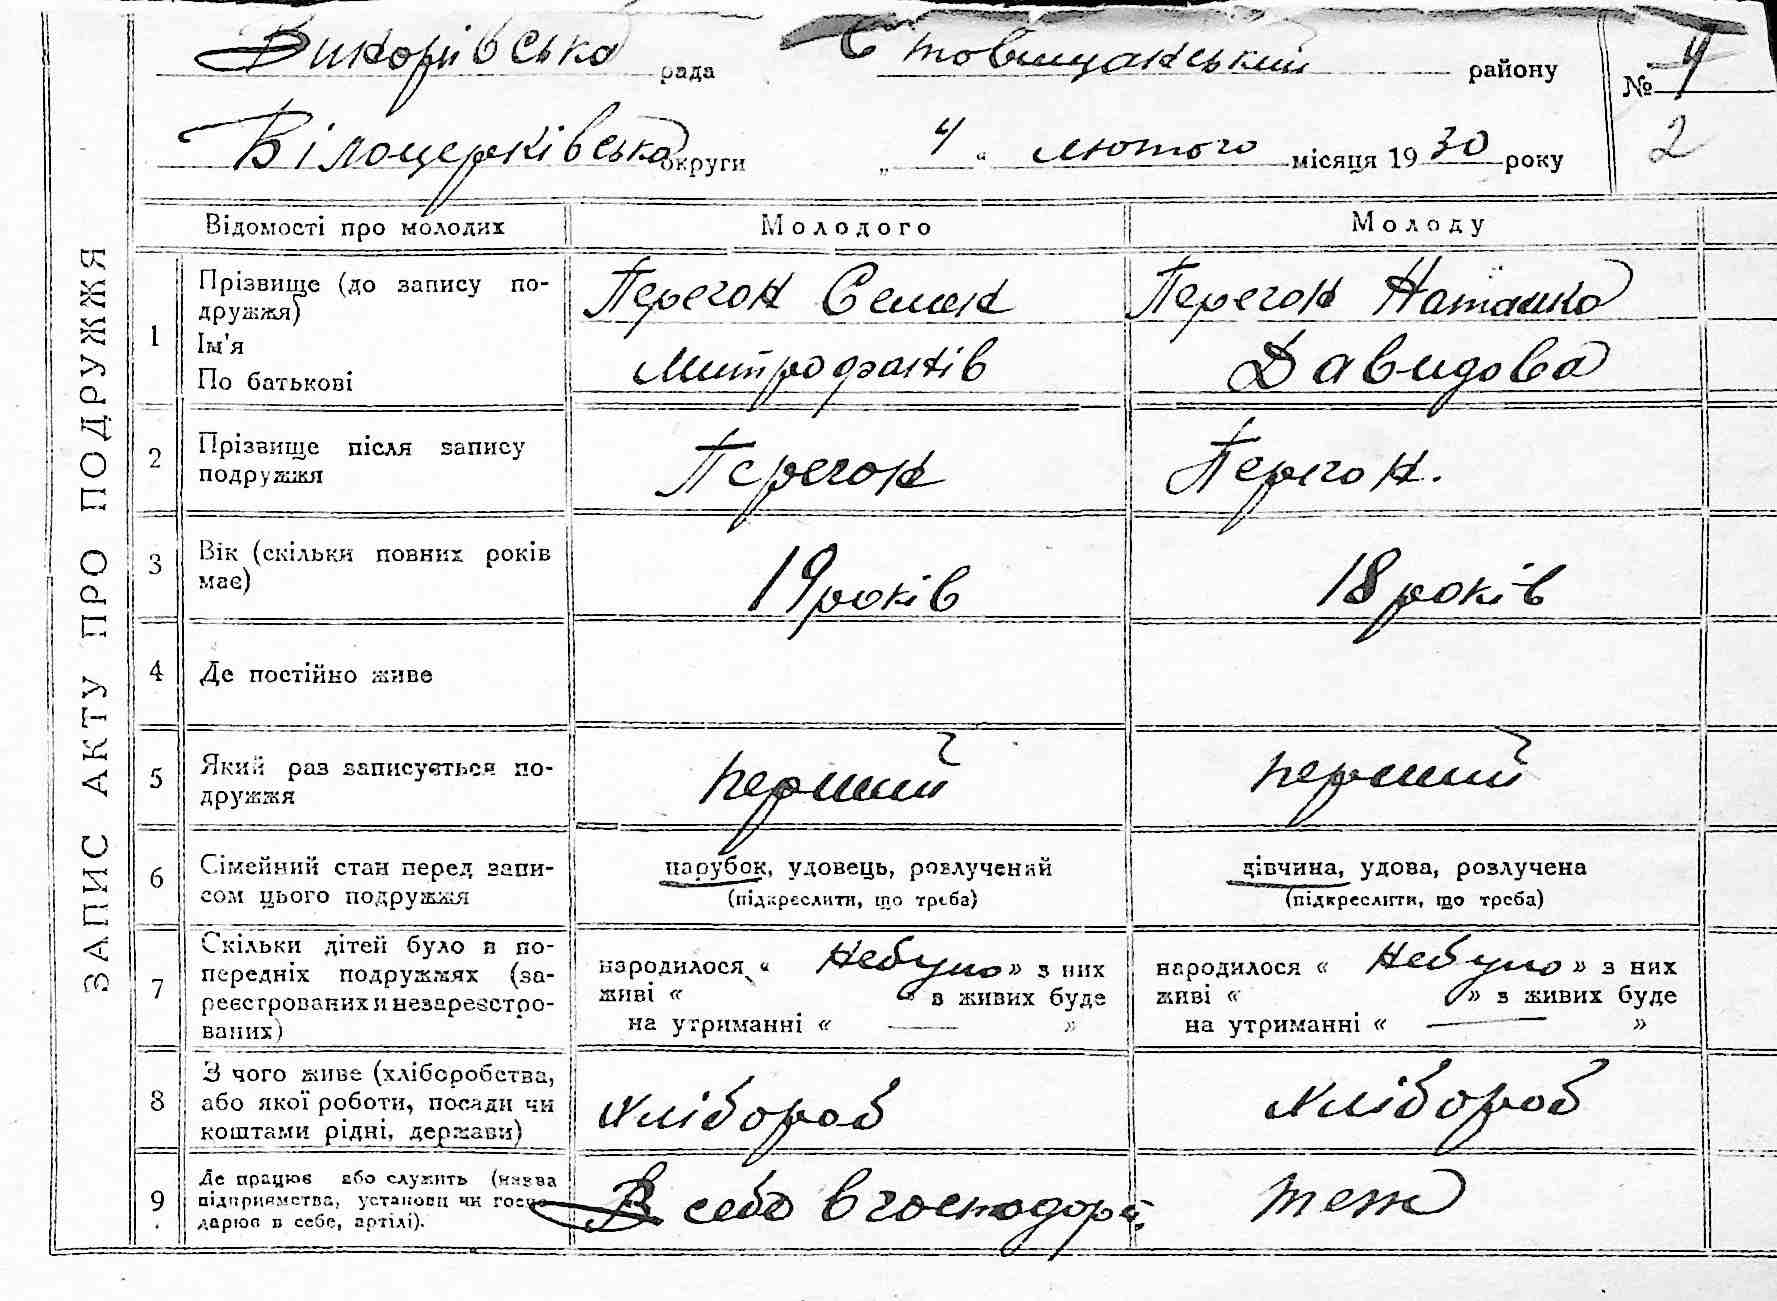 Винорівська рада Ставищанський району № 4
Білоцерківська округи „ 4 “ лютого місяця 1930 року 2
ЗАПИС АКТУ ПРО ПОДРУЖЖЯ
Відомості про молодих Молодого Молоду
1 Прізвище (до запису по-
дружжя) Перегон Семен Перегон Наташка
Ім'я
По батькові Митрофанів Давидова
2 Прізвище після запису
подружжя Перегон Перегон.
3 Вік (скільки повних років
має) 19 років 18 років
4 Де постійно живе
5 Який раз записується по-
дружжя перший перший
6 Сімейний стан перед запи-
сом цього подружжя
парубок, удовець, розлучений
(підкреслити, що треба)
дівчина, удова, розлучена
(підкреслити, що треба)
7 Скільки дітей було в по-
передніх подружжях (за-
реєстрованих й незареєстро-
ваних)
народилося « Небуло » з них
живі « » в живих буде
на утриманні « — »
народилося « Небуло » з них
живі « » з живих буде
на утриманні « — »
8 З чого живе (хліборобства,
або якої роботи, посади чи
коштами рідні, держави) хлібороб хлібороб
9 Де працює або служить (назва
підприємства, установи чи госпо-
дарює в себе, артілі). В себе в господарі. теж